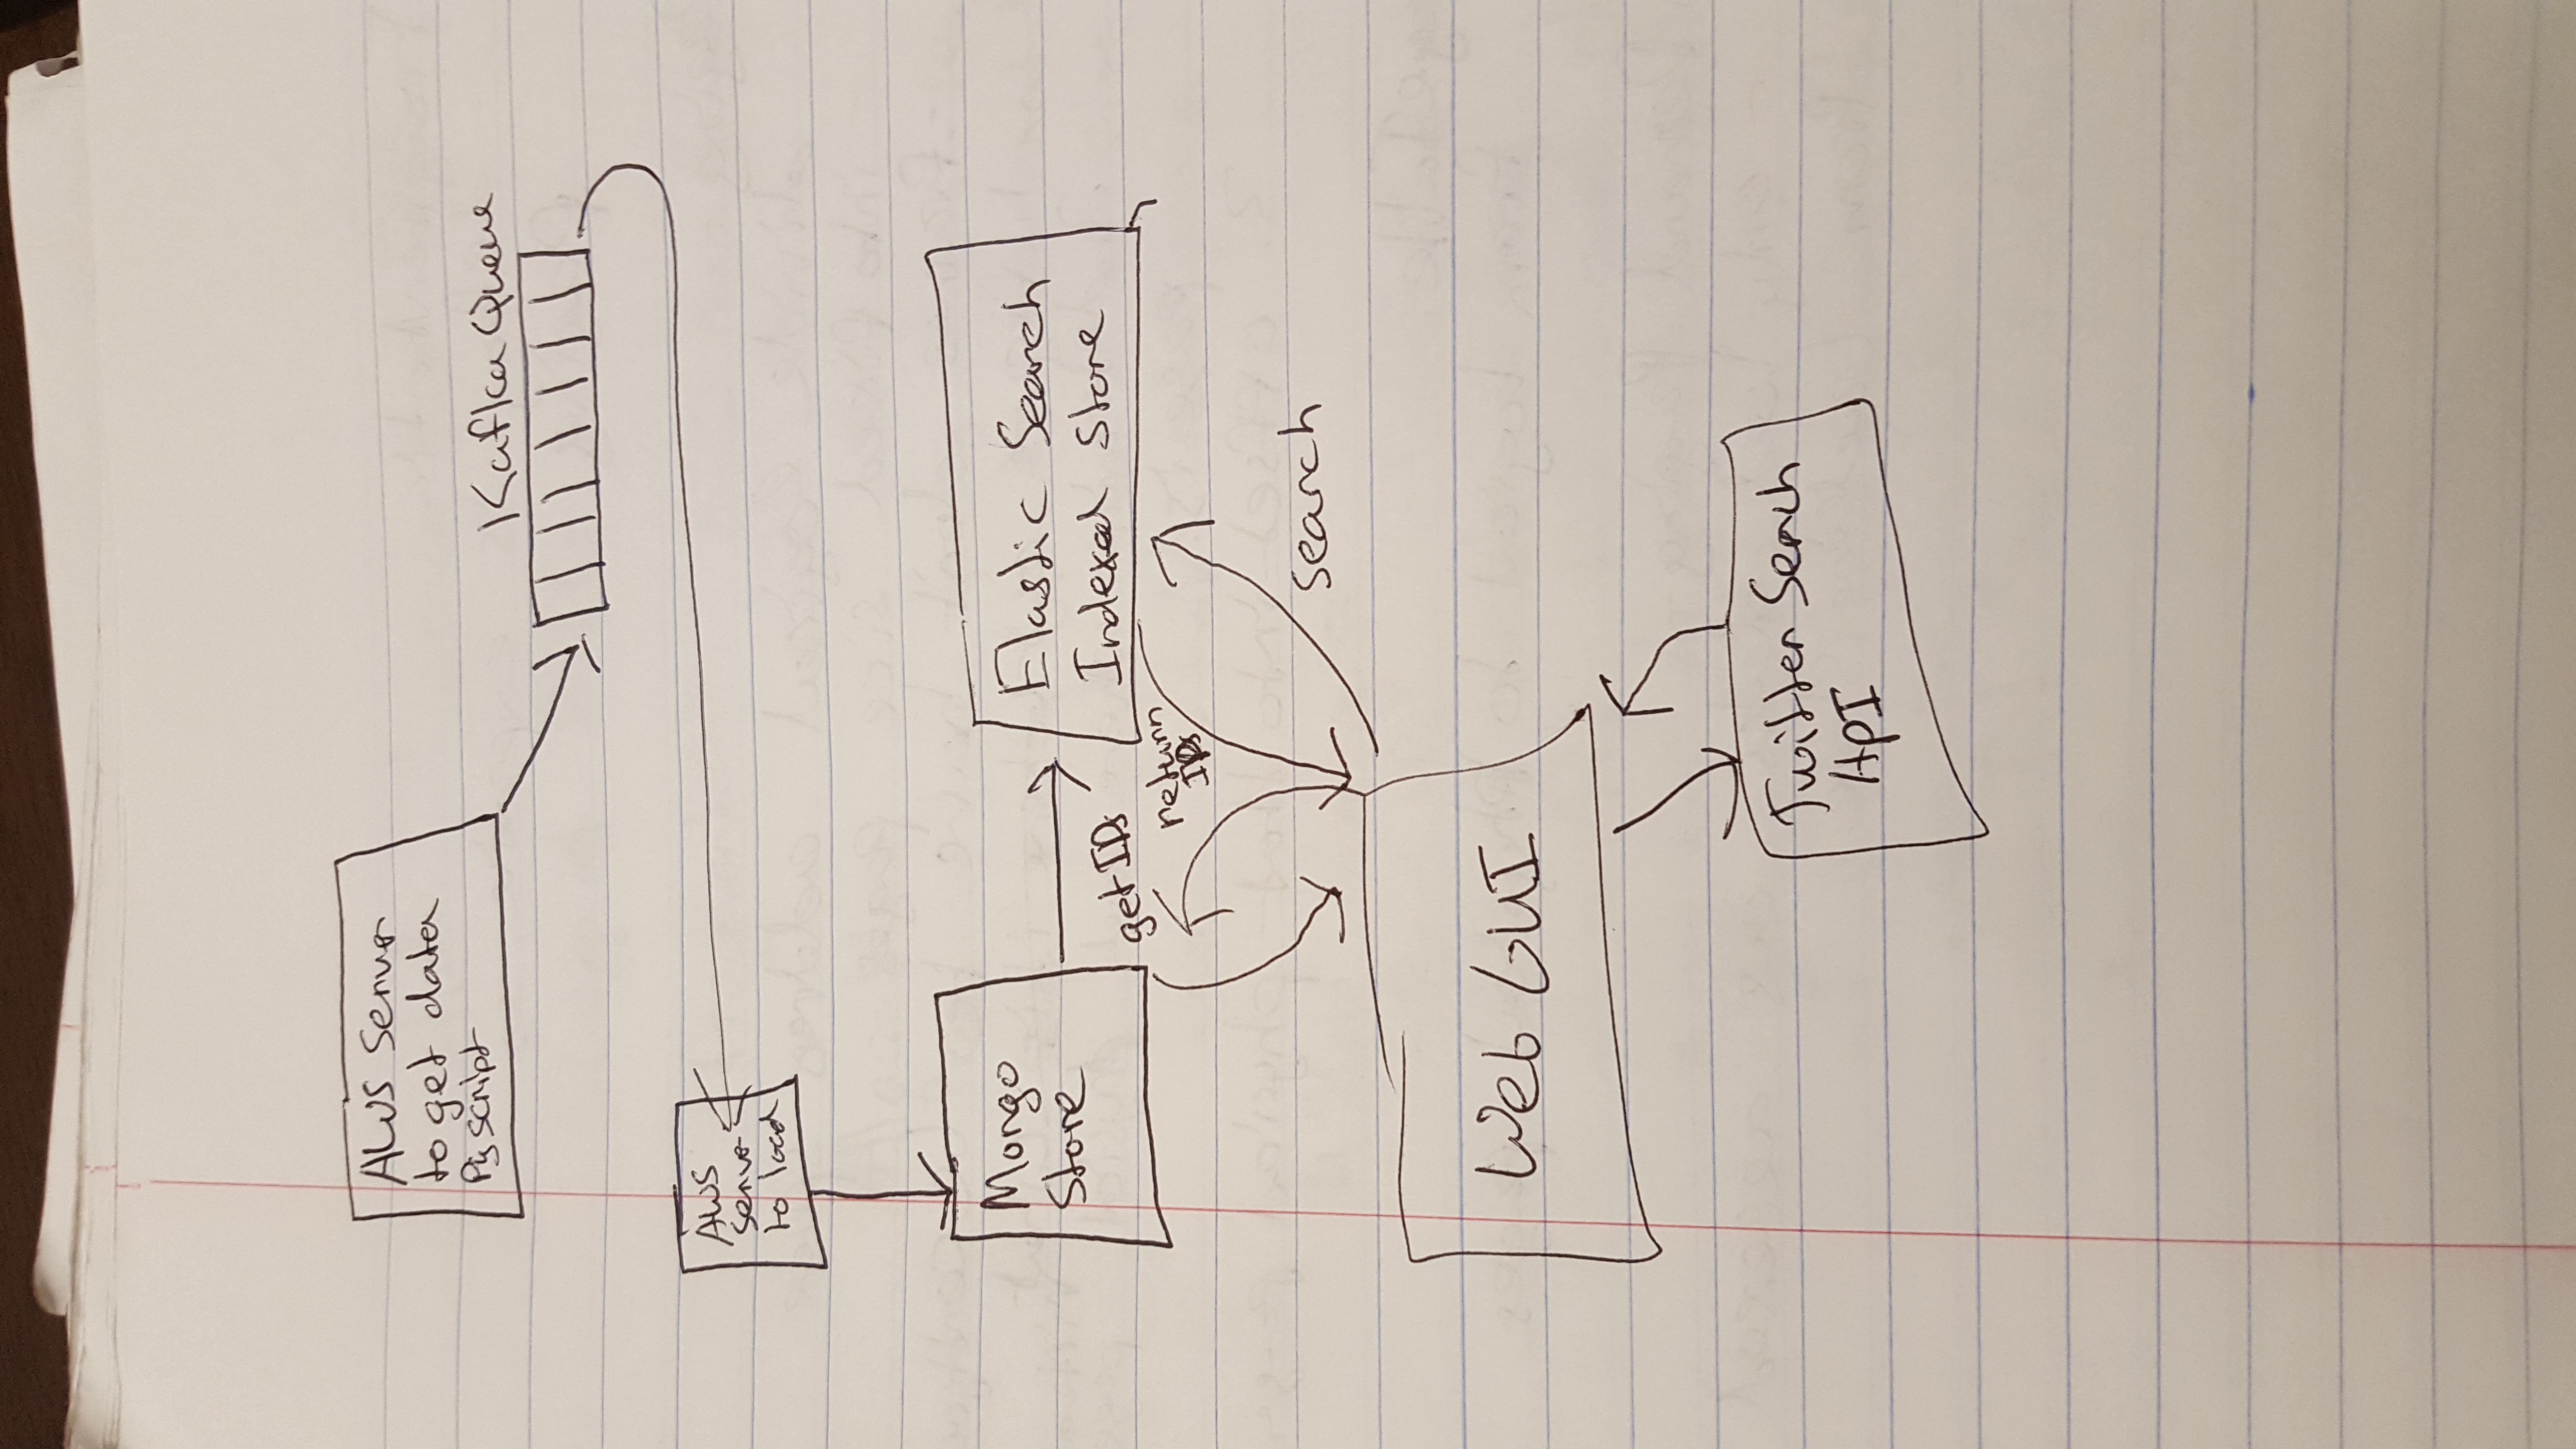 AWS Server
to get data
Py script
Kafka Queue
AWS
Server
to load
Mongo
Store
Elastic Search
Indexed Store
get IDs
return
IDs
Search
Web GUI
Twitter Serch
API